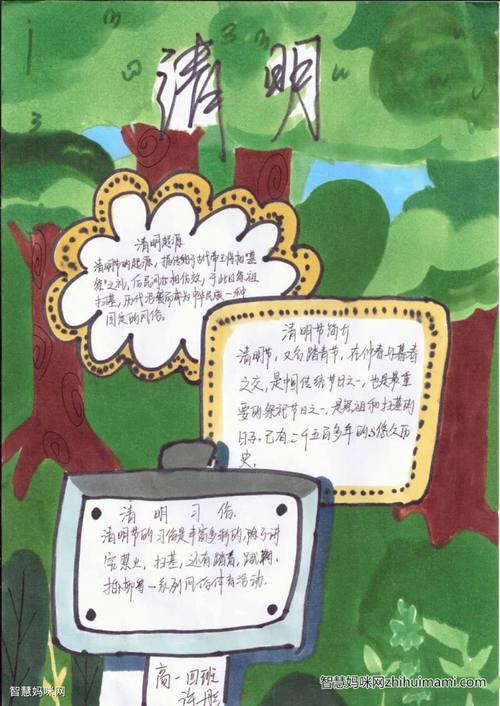 清明
清明起源
清明节的起源,据传始于古代帝王将相墓
祭之礼,后民间亦相仿效,于此日祭祖
扫墓,历代沿袭而成为中华民族一种
固定的风俗。
清明节简介
清明节,又名踏青节,在仲春与暮春
之交,是中国传统节日之一,也是最重
要的祭祀节日之一,是祭祖和扫墓的
日子,已有二千五百多年的悠久历
史。
清明习俗
清明节的习俗是丰富多彩的,除了讲
究禁火、扫墓,还有踏青、蹴鞠、
插柳等一系列风俗体育活动。
高一四班
智慧妈咪网
智慧妈咪网zhihuimami.com